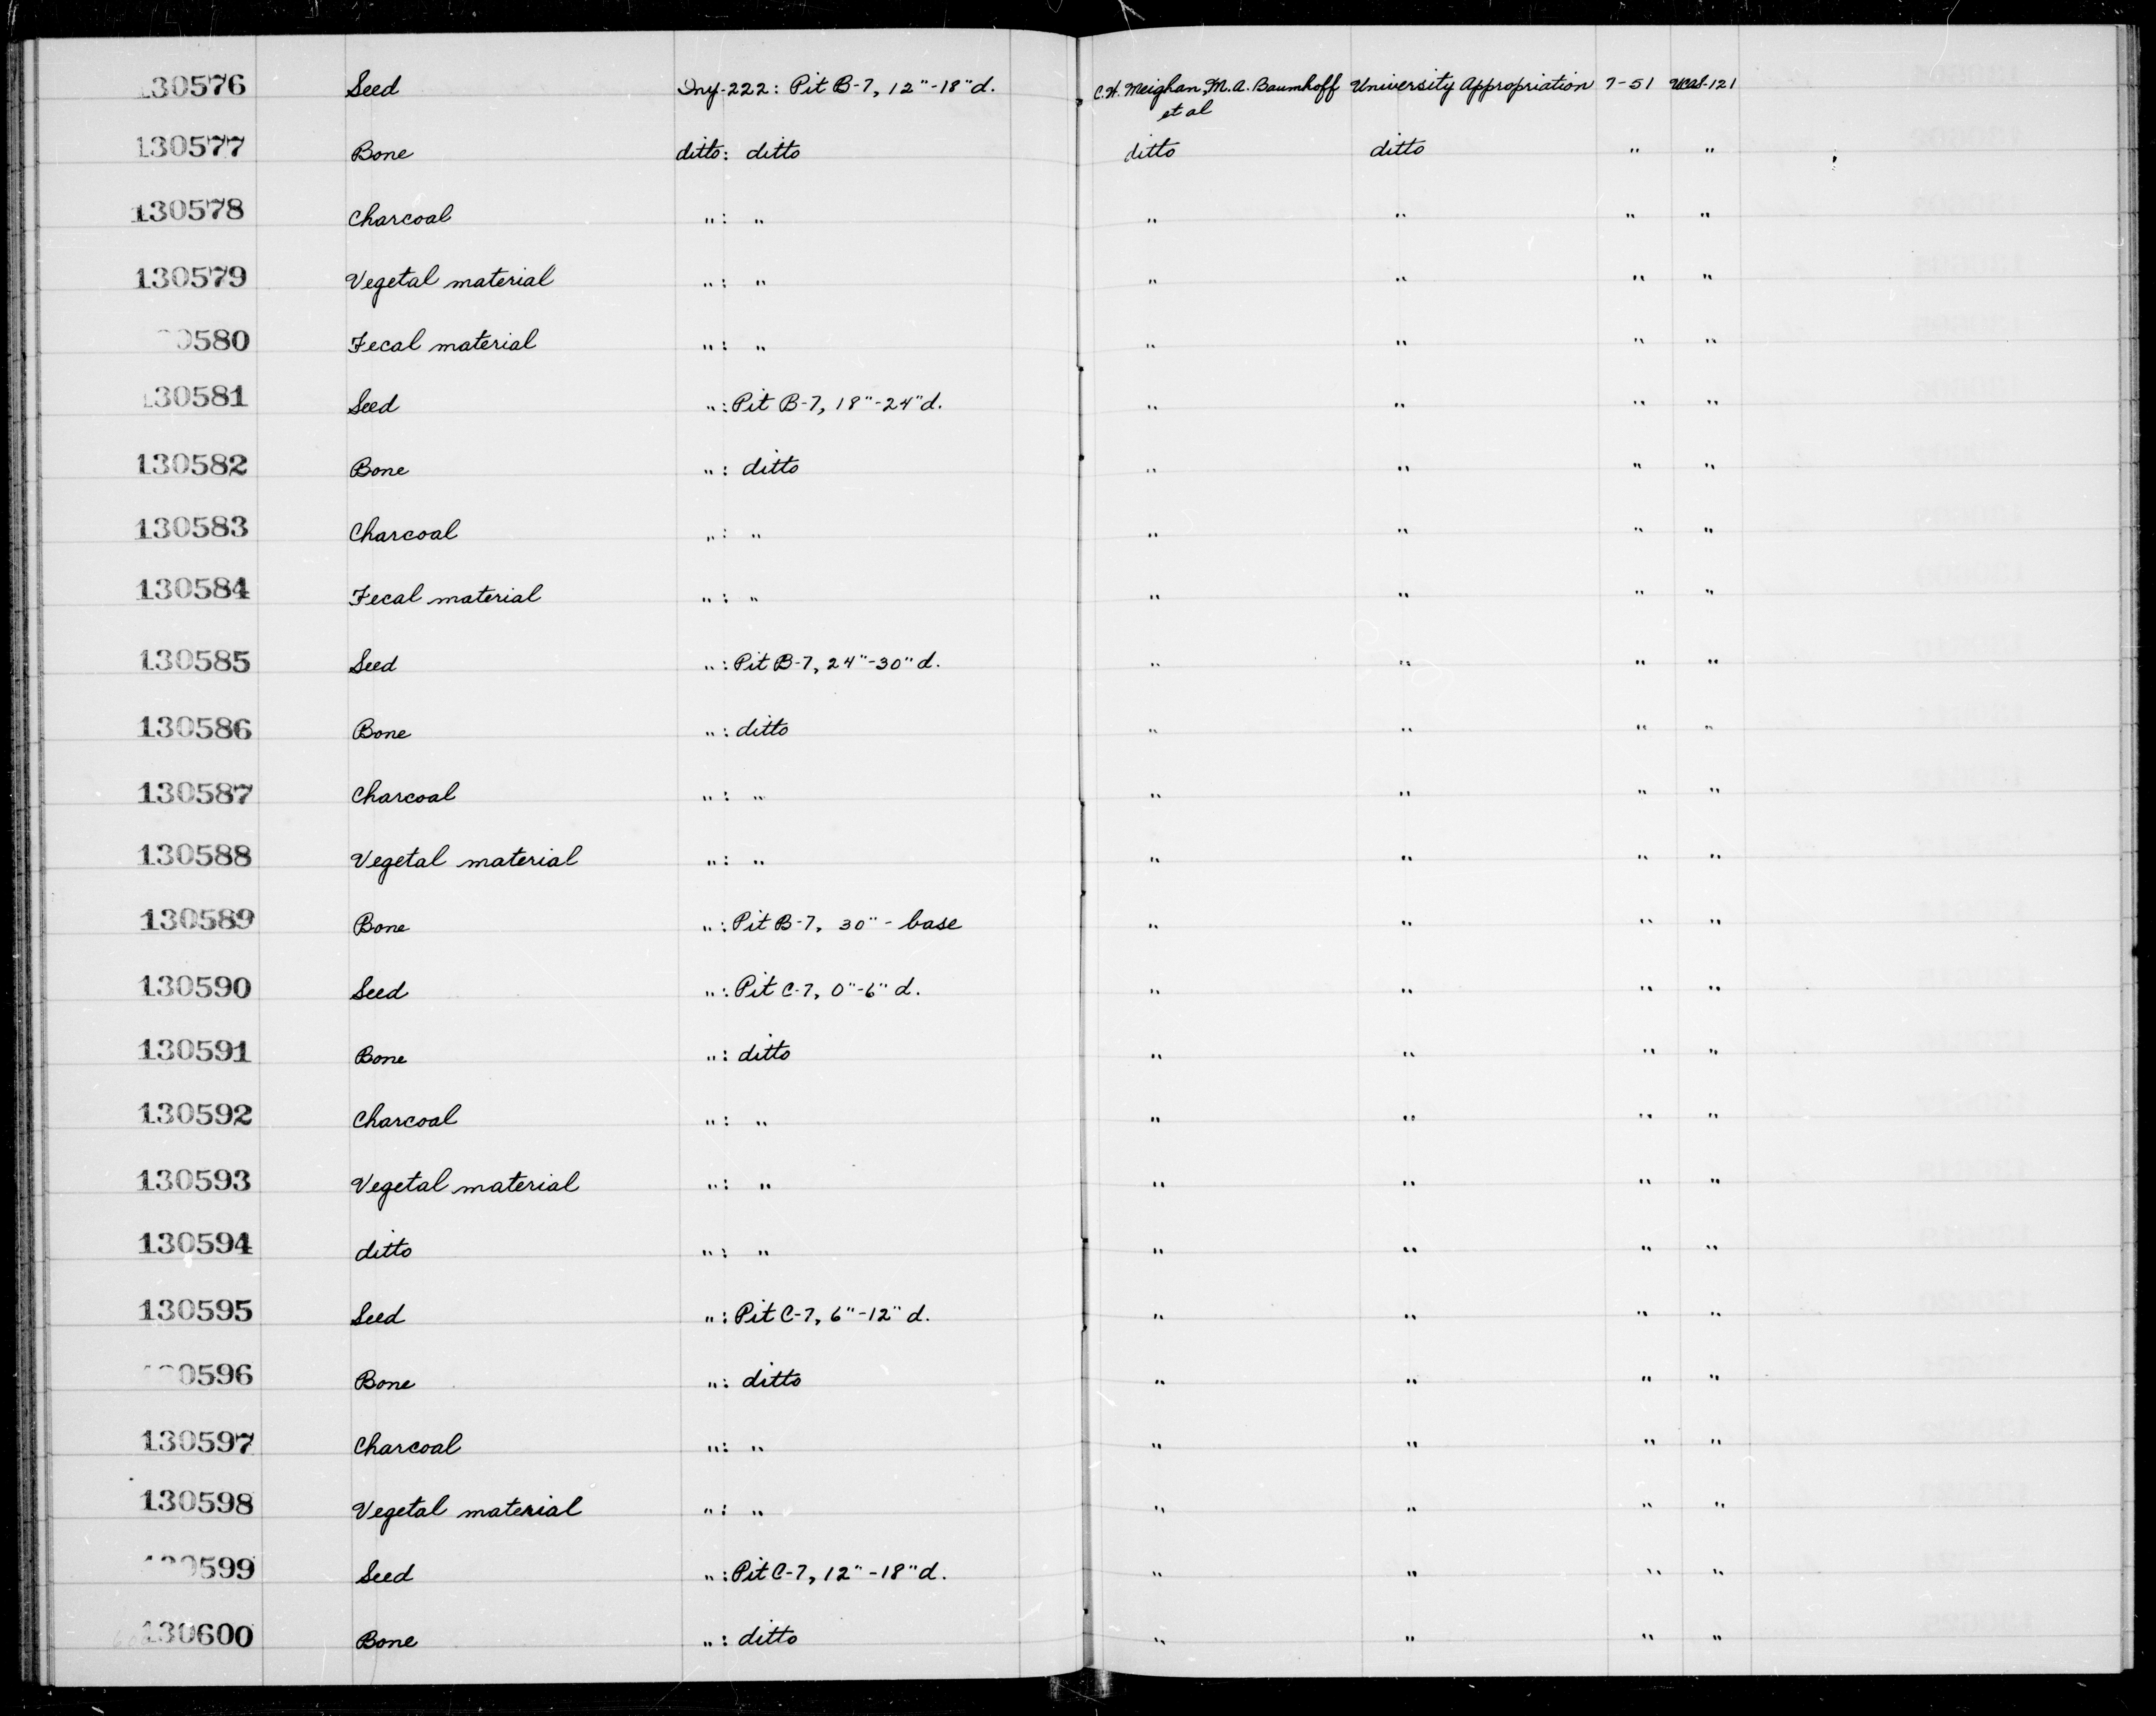 130576 Seed Iny-222: Pit B-7, 12"-18"d. C.W. Meighan, M.A. Baumhoff University Appropriation 7-51 UCAS-121
et al
130577 Bone ditto: ditto ditto ditto " "
130578 Charcoal " : " " " " "
130579 Vegetal material " : " " " " "
0580 Fecal material " : " " " " "
130581 Seed " : Pit B-7, 18"-24"d. " " " "
130582 Bone " : ditto " " " "
130583 Charcoal " : " " " " "
130584 Fecal material " : " " " " "
130585 Seed " : Pit B-7, 24"-30"d. " " " "
130586 Bone " : ditto " " " "
130587 Charcoal " : " " " " "
130588 Vegetal material " : " " " " "
130589 Bone " : Pit B-7, 30" - base " " " "
130590 Seed " : Pit C-7, 0"-6" d. " " " "
130591 Bone " : ditto " " " "
130592 Charcoal " : " " " " "
130593 Vegetal material " : " " " " "
130594 ditto " : " " " " "
130595 Seed " : Pit C-7, 6"-12" d. " " " "
0596 Bone " : ditto " " " "
130597 Charcoal " : " " " " "
130598 Vegetal material " : " " " " "
130599 Seed " : Pit C-7, 12"-18"d. " " " "
130600 Bone " : ditto " " " "